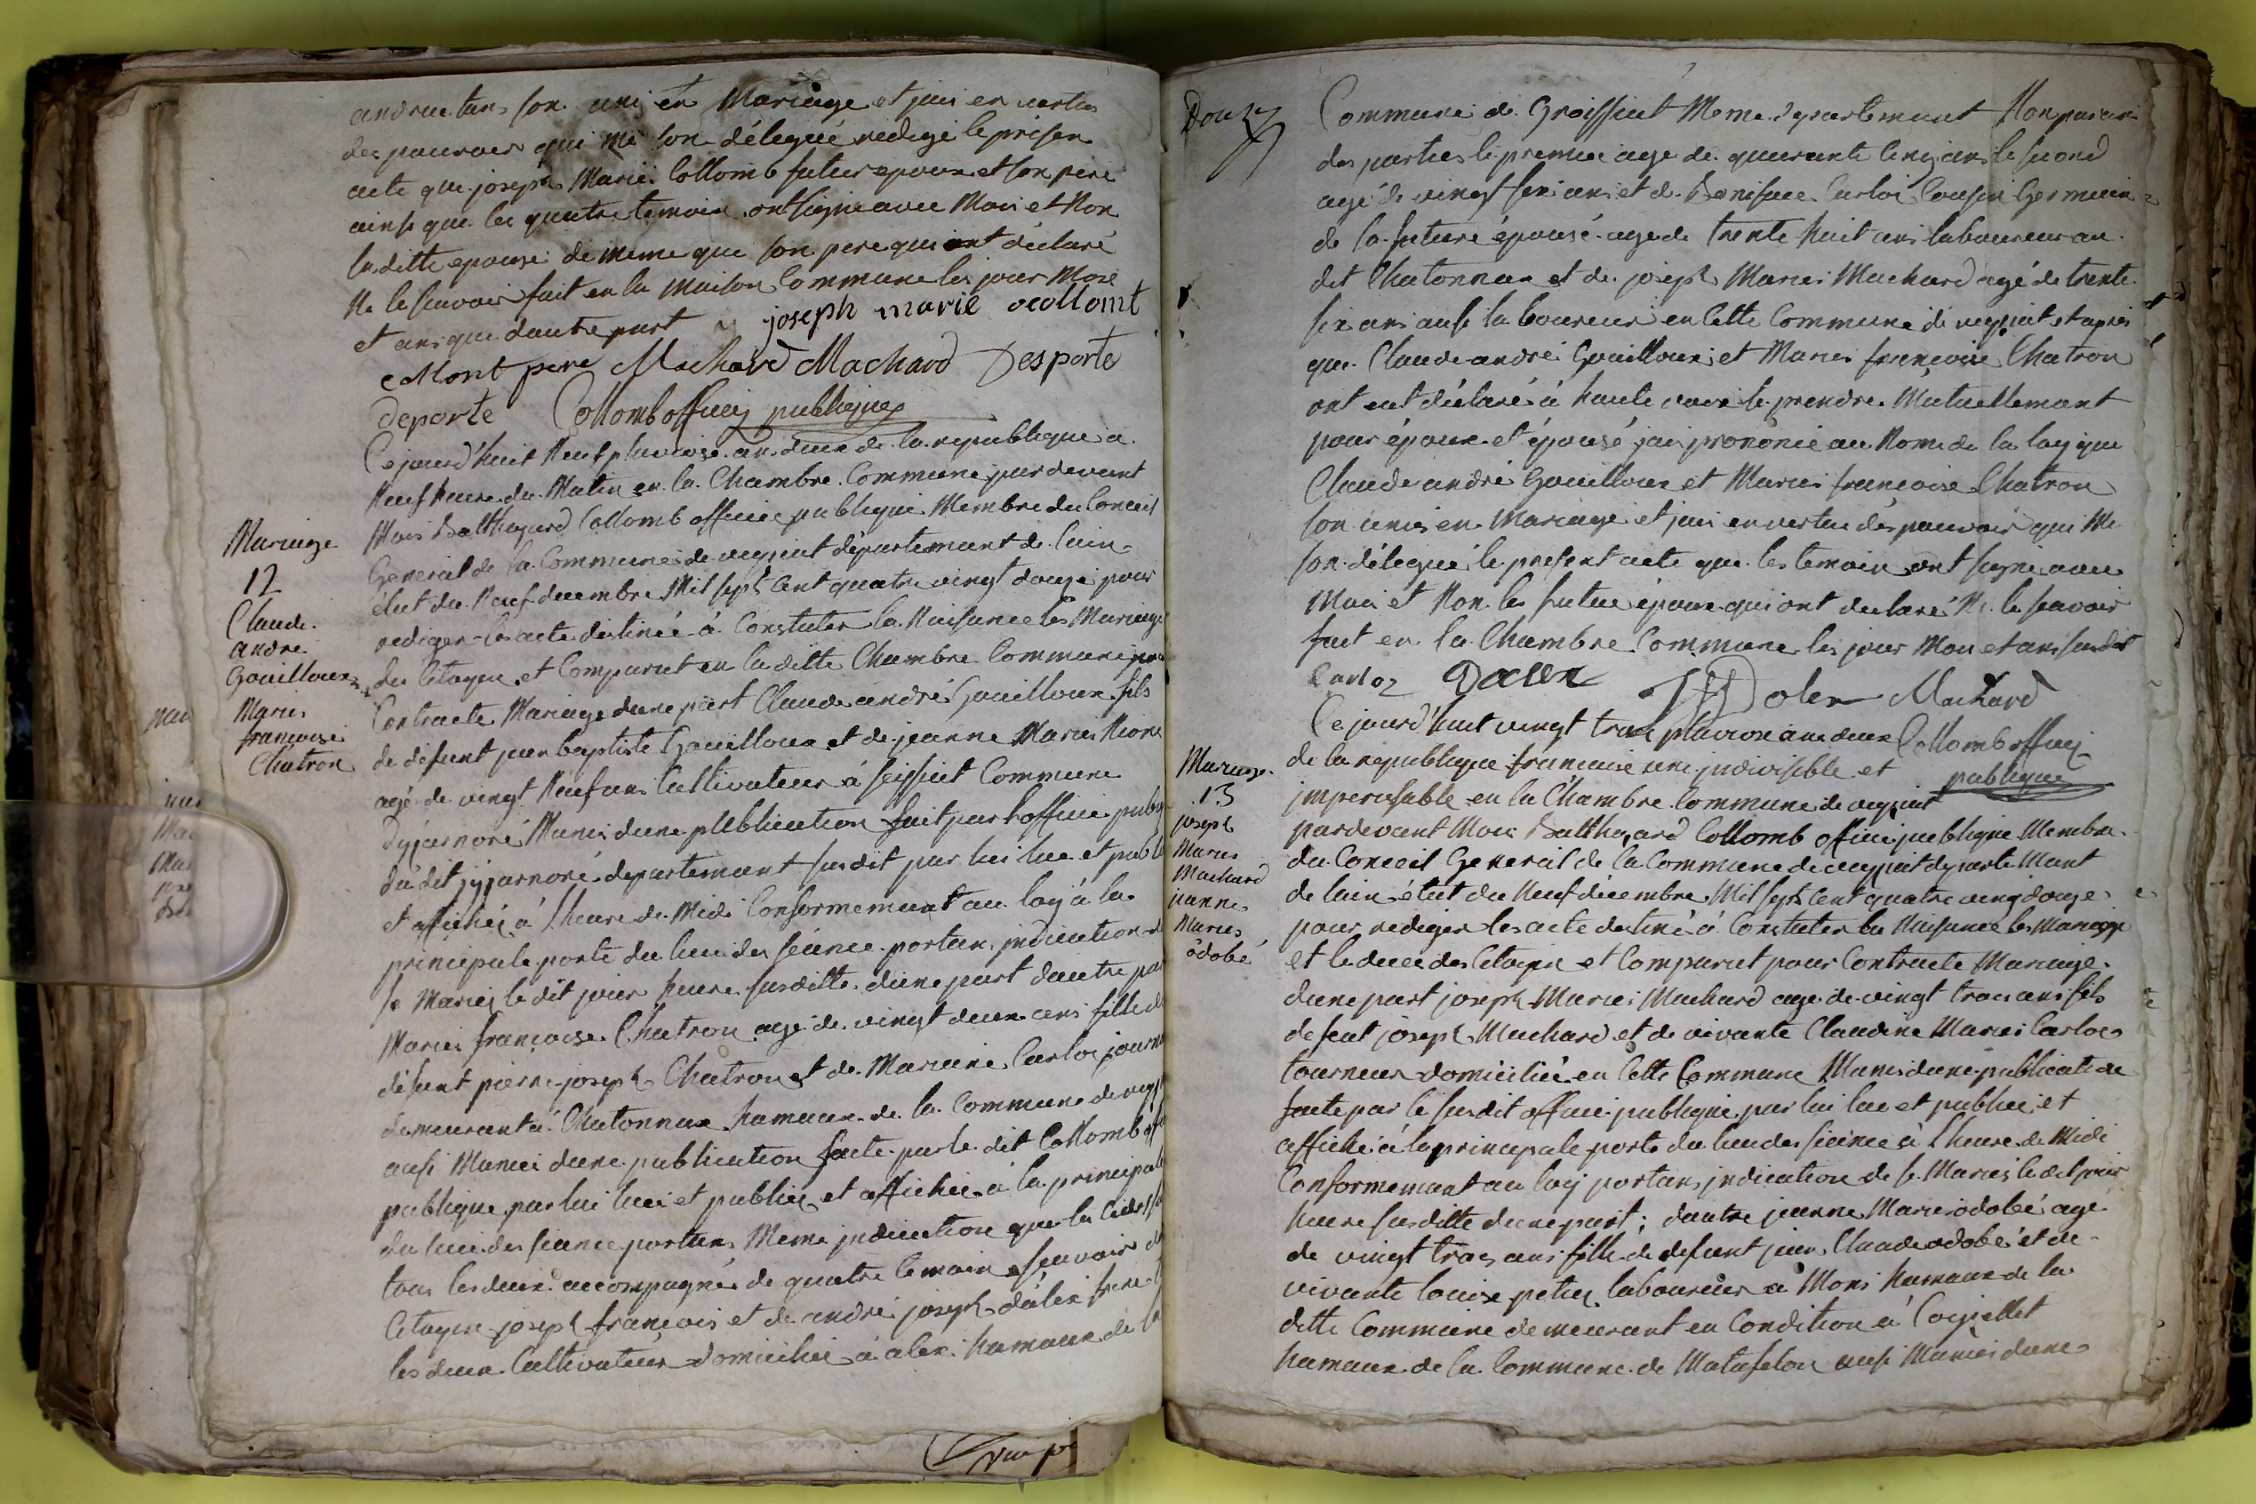 andree tans son unis en Mariage et jai en vertus
des pouvoir qui me son délegué redigé le présen
acte que joseph Marie Collomb futur epoux et son pere
ainsi que les quatre temoin ont signe avec Moi et Non
laditte epouse de meme que son pere qui ont déclaré
Ne le scavoir fait en la Maison Commune les jour Mois
et ans que dautre part joseph marie collomt
collont pere Machard Machard Desporte
deporte Collomb officier publique
Mariage
12
Claude
andré
Gouilloux
Marie
françoise
Chatron
Cejourd'huit Neuf pluviose ans deux de la republique a
Neuf heure du Matin en la Chambre Commune pardevant
Mois Balthazard Collomb officier publique Membre du Conceil
General de la Commune de veyziat département de lain
élut du Neuf decembre Mil sept cent quatre vingt douze pour
rediger les acte destinée à Constater la Naisance les Mariage
des Citoyen et Comparut en la ditte Chambre Commune pour
Contracte Mariage dune part Claude andré Gouilloux fils
de défunt jean baptiste Gouilloux et de jeanne Marie
agé de vingt Neuf ans Cultivateur à seissiat Commune
Dyzernore Munis dune publication fait par lofficie
du dit jzernore departement susdit par lui lue et
et affichée à lheure de Midi Conformement au loy à la
principale porte du lieu des séance portans jndication
se Marier le dit jour heure susditte dune part dautre
Marie françoise Chatron agé de vingt deux ans fille
défunt pierre joseph Chatron et de Mariane Carloz
demeurant à Chatonnax hameaux de la Commune de
ausi Munie dune publication faite par le dit Collomb
publique par lui luei et publiez et affichée à la principale
du lieu des séance portans Meme jndication que la
tous les deux accompagnés de quatre temoin scavoir
Citoyen joseph françois et de andré joseph dalex frere
les deux Cultivateur domicilié à alex hamaux de la
Douze
Commune de Groissiat Meme departement Non paran
des parties le premier age de quarante cinq ans le second
agé de vingt six ans et de Boniface Carloz Cousin Germain
de la future épouse age de trente huit ans laboureur au
dit Chatonnax et de joseph Marie Machard agé de trente
six ans ausi laboureur en Cette Commune de veyziat et apres
que Claude andré Gouilloux et Marie françoise Chatron
ont eut déclaré à haute voix se prendre Mutuellement
pour époux et épouse jai prononcé au Nom de la loy que
Claude andré Gouilloux et Marie françoise Chatron
son unis en Mariage et jai en vertu des pouvoir qui Me
son délegué le present acte que les temoin ont signe avec
Moi et Non les futur époux qui ont declaré Ne le scavoir
fait en la Chambre Commune les jour Mois et ans susdit
Carloz Dalex Dolex Machard
Collomb officier
publique
Mariage
13
joseph
Marie
Machard
jeanne
Marie
odobé
Cejourd'huit vingt trois pluviose ans deux
de la republique francaise une jndivisible et
jmperisable en la Chambre Commune de veyziat
pardevant Moi Balthazard Collomb officie publique Membre
du Conceil General de la Commune de veyziat departemant
de lain élut du Neuf décembre Mil sept cent quatre vingt douze
pour rediger les acte destiné à Constater la Naisance les Mariage
et le deces des Citoyen et Comparut pour Contracte Mariage
dune part joseph Marie Machard age de vingt trois ans fils
de feut joseph Machard et de vivante Claudine Marie Carloz
tourneur domicilié en Cette Commune Munis dune publication
faite par le susdit officie publique par lui lue et publiei et
affiché à la principale porte du lieu des séance à lheure de Midi
Conformemant au loy portans jndication de se Marier le dit jour
heure susditte dune part ; dautre jeanne Marie odobé agé
de vingt trois ans fille de defunt jean Claude odobé et de
vivante louise petiez laboureur à Mons hamaux de la
ditte Commune demeurant en Condition à Coizellet
hamaux de la Commune de Matafelon ausi Munié dune